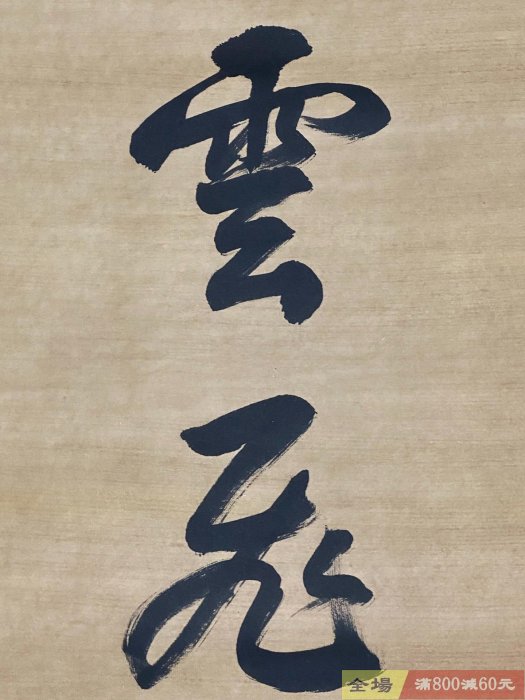 雲
飛
全場 滿800減60元